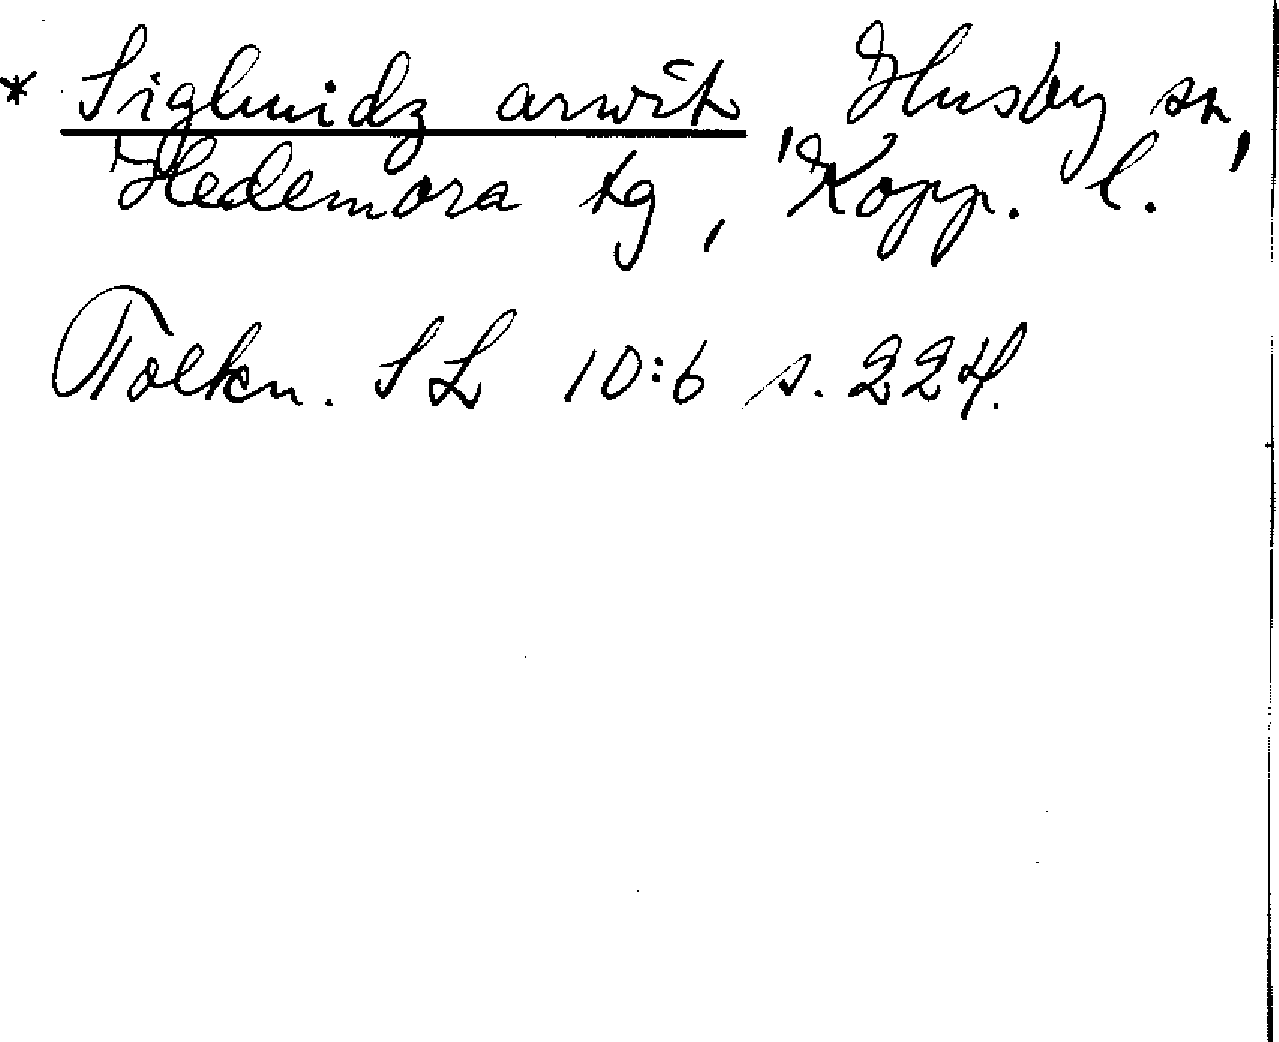 * Siglwidz arwit, Husby sn,
Hedemora tg, Kopp. l.
Tolkn. SL 10:6 s. 224.